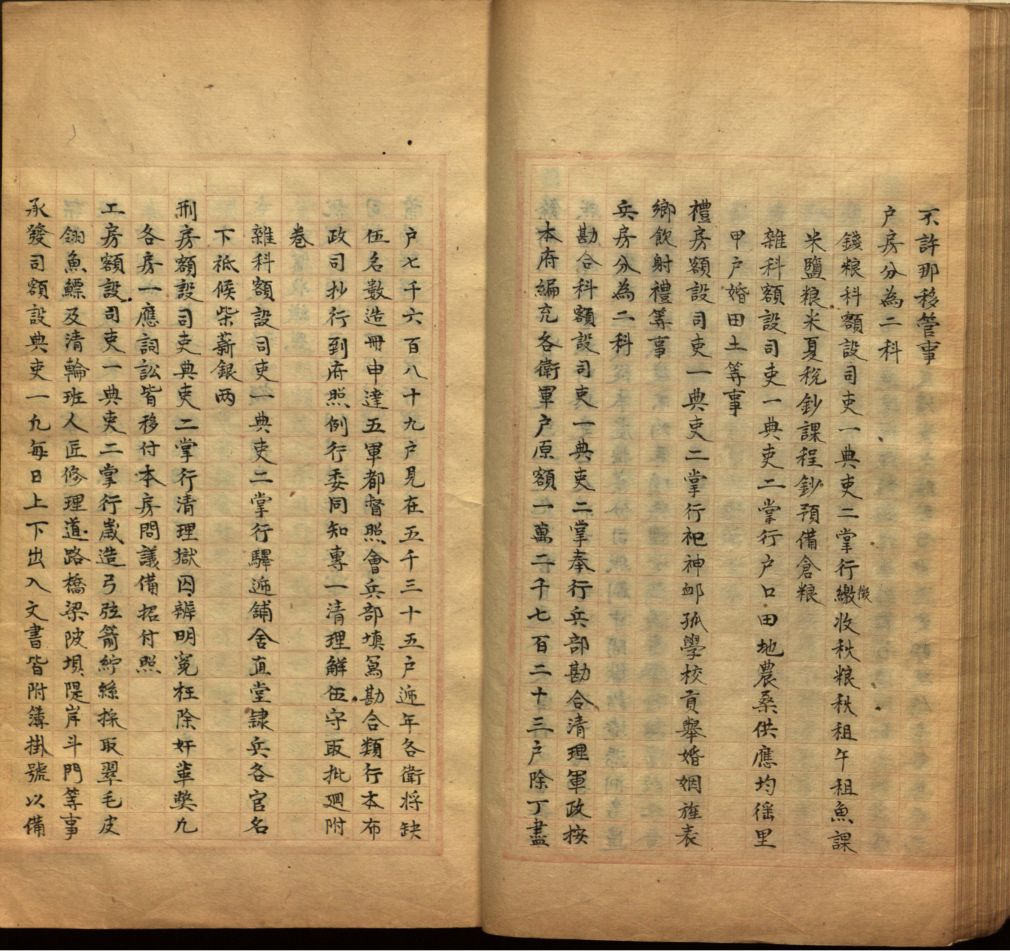 不許那移管事
户房分為二科
錢粮科額設司吏一典吏二掌行繳收秋粮秋租午租魚課
徵
米鹽粮米夏稅鈔課程鈔預備倉粮
雜科額設司吏一典吏二掌行户口田地農桑供應均徭里
甲户婚田土等事
禮房額設司吏一典吏二掌行祀神邮孤學校貢舉婚姻旌表
鄉飲射禮等事
兵房分為二科
勘合科額設司吏一典吏二掌奉行兵部勘合清理軍政按
本府編充各衛軍户原額一萬二千七百二十三户除丁盡
户七千六百八十九户見在五千三十五户遞年各衛將缺
伍名數造冊申達五軍都督照會兵部填寫勘合類行本布
政司抄行到府照例行委同知專一清理解伍守取批迴附
卷
雜科額設司吏一典吏二掌行驛遞鋪舍直堂隷兵各官名
下祗候柴薪銀兩
刑房額設司吏典吏二掌行清理獄囚辨明寃枉除奸革獘凢
各房一應詞訟皆移付本房問議備招付照
工房額設司吏一典吏二掌行歲造弓弦箭紵絲採取翠毛皮
翎魚鰾及清輪班人匠修理道路橋梁陂垻隄岸斗門等事
承發司額設典吏一凢每日上下出入文書皆附簿掛號以備